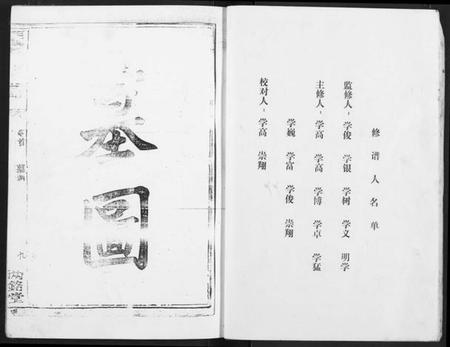 修谱人名单
监修人：学俊 学银 学树 学义 明学
主修人：学高 学高 学博 学卓 学猛
学巍 学富 学俊 崇翔
校对人：学高 崇翔
墓圖
卷首
墓圖
九
銘堂